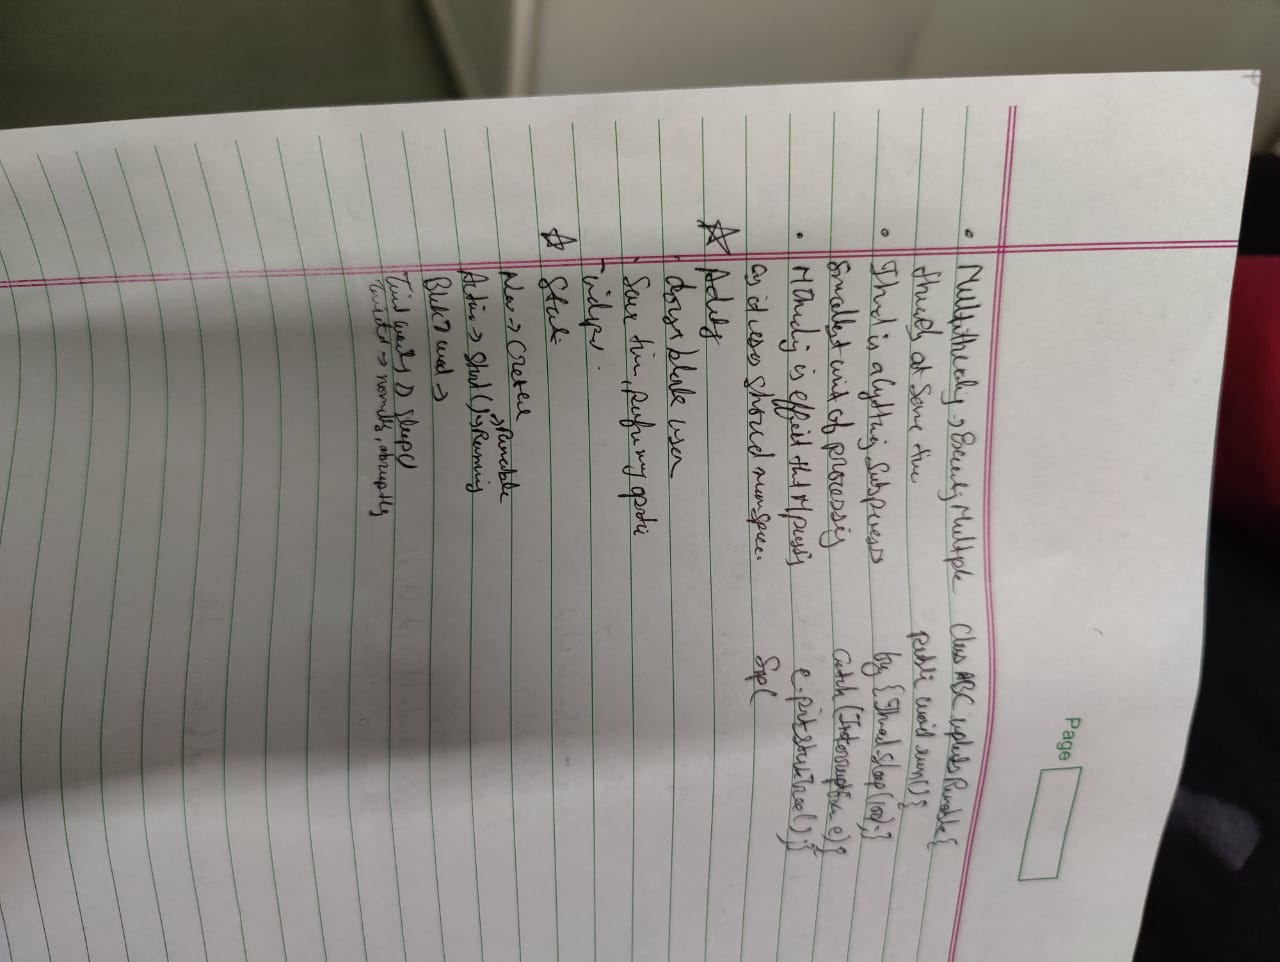 Page
Multithreading → Executing Multiple
threads at same time
Thread is a lightweig Subprocess
Smallest unit of processing
MThreding is efficient that Mprocess
as it uses shared mem space.
Advtg
doesn't block user
Save tim, perform my opratio
indpen.
State
New → Created
→ Runnable
Active → Start() → Running
Block → wait →
Timd waits → sleep()
→ normally, abruptly
Class ABC implents Runable {
public void run() {
try { Thread.sleep(100); }
Catch (Interrupt e) {
e.printStackTrace(); }